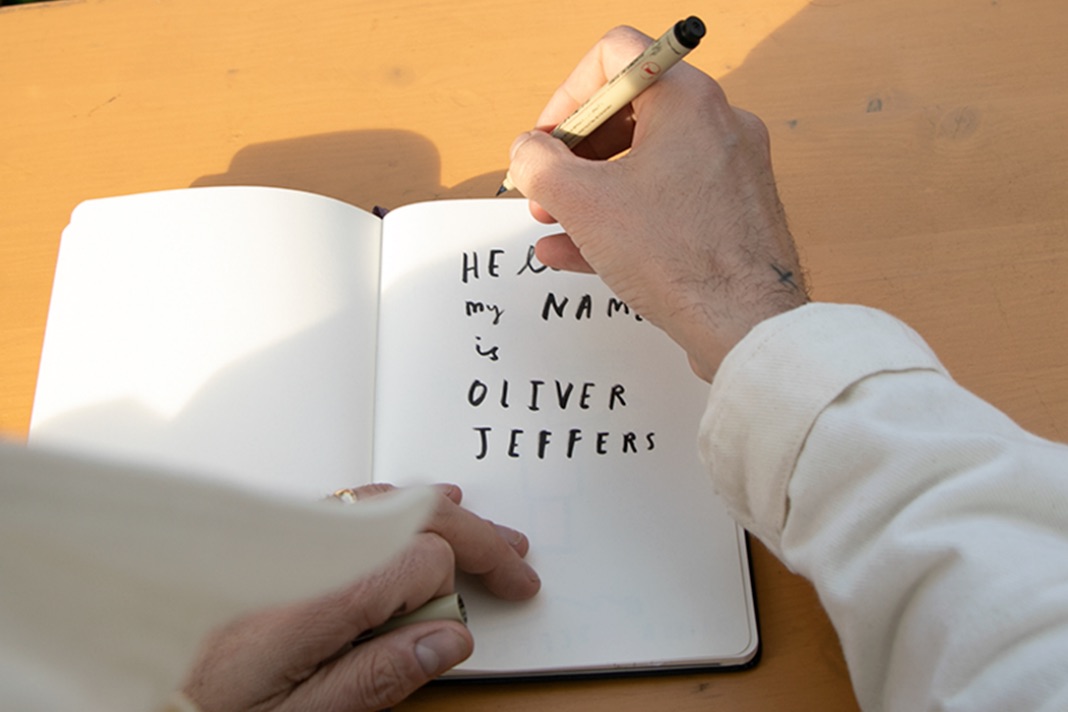 HE
my
is
OLIVER
JEFFERS